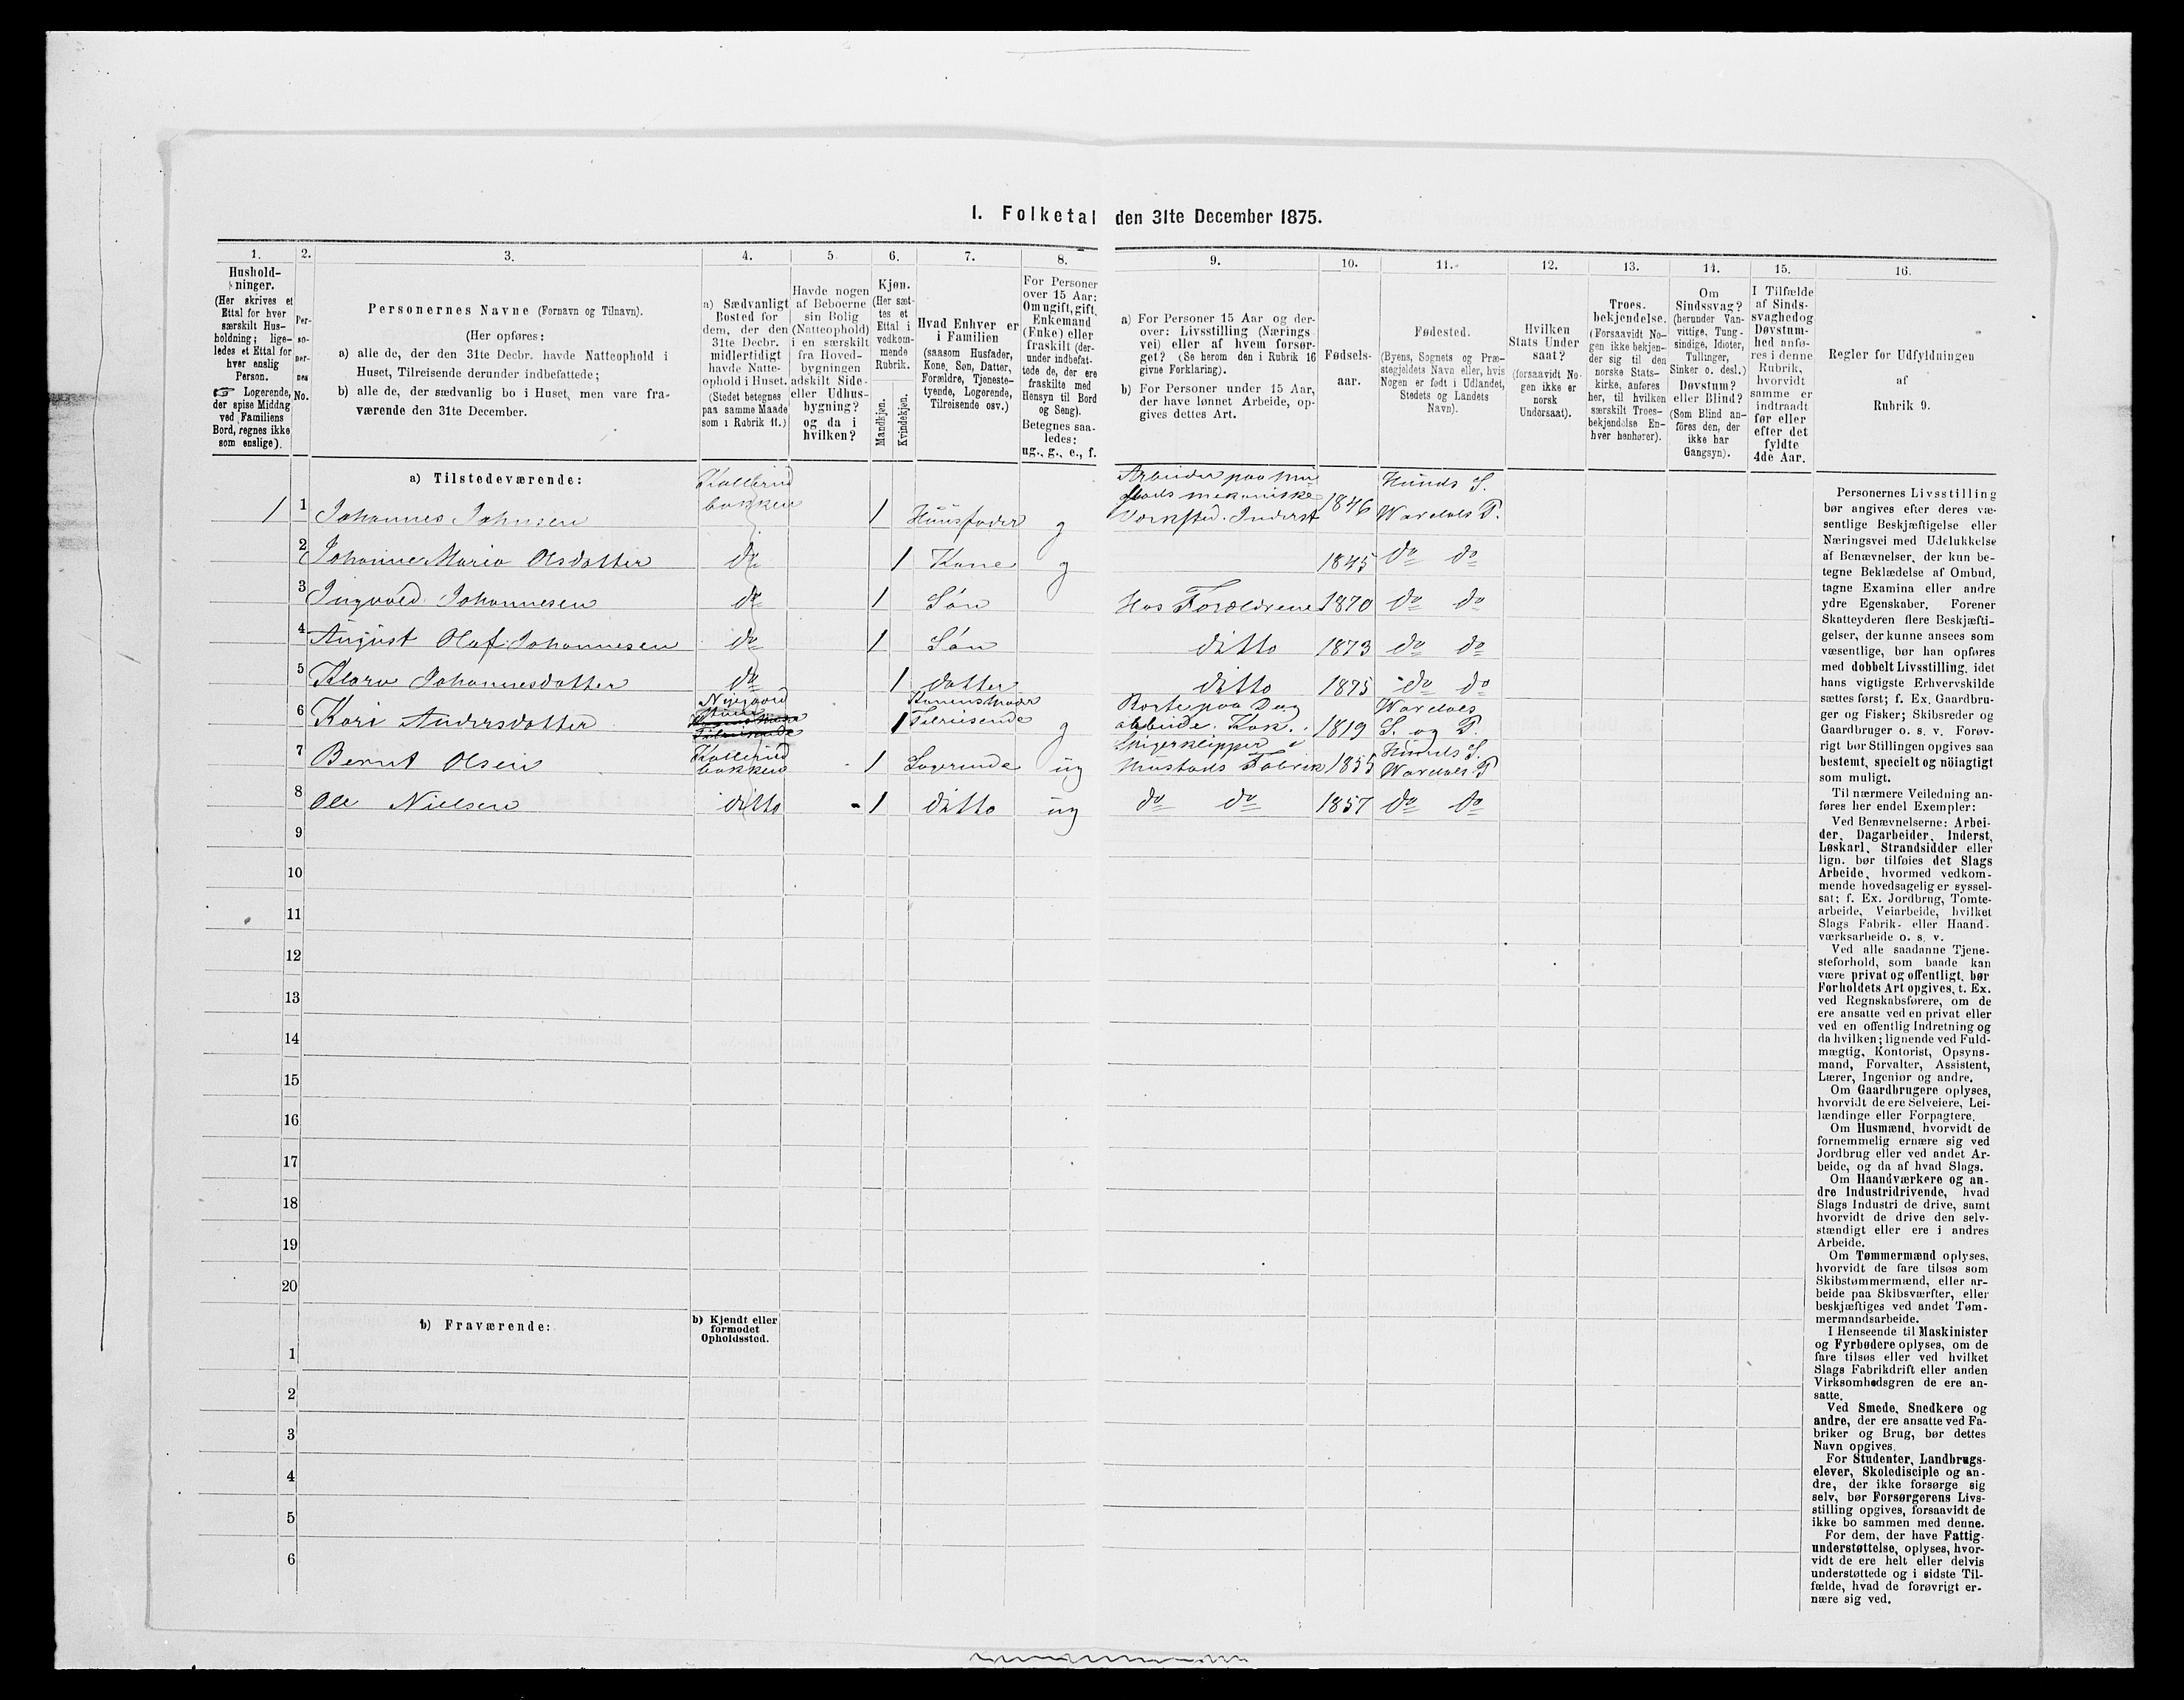 I. Folketal den 31te December 1875.
1. 2. 3. 4. 5. 6. 7. 8. 9. 10. 11. 12. 13. 14. 15. 16.
Hushold-
ninger.
(Her skrives et
Ettal for hver
særskilt Hus-
holdning; lige-
ledes et Ettal for
hver enslig
Person.
☞ Logerende,
der spise Middag
ved Familiens
Bord, regnes ikke
som enslige).
Per-
so-
ner-
nes
No.
Personernes Navne (Fornavn og Tilnavn).
(Her opføres:
a) alle de, der den 31te Decbr. havde Natteophold i
Huset, Tilreisende derunder indbefattede;
b) alle de, der sædvanlig bo i Huset, men vare fra-
værende den 31te December.
a) Sædvanligt
Bosted for
dem, der den
31te Decbr.
midlertidigt
havde Natte-
ophold i Huset.
(Stedet betegnes
paa samme Maade
som i Rubrik 11.)
Havde nogen
af Beboerne
sin Bolig
(Natteophold)
i en særskilt
fra Hoved-
bygningen
adskilt Side-
eller Udhus-
bygning?
og da i
hvilken?
Kjøn.
(Her sæt-
tes et
Ettal i
vedkom-
mende
Rubrik.
Mandkjøn.
Kvindekjøn.
Hvad Enhver er
i Familien
(saasom Husfader,
Kone, Søn, Datter,
Forældre, Tjeneste-
tyende, Logerende,
Tilreisende osv.)
For Personer
over 15 Aar:
Om ugift, gift,
Enkemand
(Enke) eller
fraskilt (der-
under indbefat-
tede de, der ere
fraskilte med
Hensyn til Bord
og Seng).
Betegnes saa-
ledes:
ug., g., e., f.
a) For Personer 15 Aar og der-
over: Livsstilling (Nærings-
vei) eller af hvem forsør-
get? (Se herom den i Rubrik 16
givne Forklaring).
b) For Personer under 15 Aar,
der have lønnet Arbeide, op-
gives dettes Art.
Fødsels-
aar.
Fødested.
(Byens, Sognets og Præ-
stegjeldets Navn eller, hvis
Nogen er født i Udlandet,
Stedets og Landets
Navn).
Hvilken
Stats Under
saat?
(forsaavidt No-
gen ikke er
norsk
Undersaat).
Troes-
bekjendelse.
(Forsaavidt No-
gen ikke bekjen-
der sig til den
norske Stats-
kirke, anføres
her, til hvilken
særskilt Troes-
bekjendelse En-
hver henhører).
Om
Sindssvag?
(herunder Van-
vittige, Tung-
sindige, Idioter,
Tullinger,
Sinker o. desl.)
Døvstum?
eller Blind?
(Som Blind an-
føres den, der
ikke har
Gangsyn).
I Tilfælde
af Sinds-
svaghed og
Døvstum-
hed anfø-
res i denne
Rubrik,
hvorvidt
samme er
indtraadt
før eller
efter det
fyldte
4de Aar.
Regler for Udfyldningen
af
Rubrik 9.
a) Tilstedeværende:
Kollerud
bakken
Arbeider paa Mu
stads mekaniske
Hunds S.
1 1 Johannes Johnsen 1 Huusfader g Værksted. Inderst 1846 Wardals P.
2 Johanne Maria Olsdatter do 1 Kone g 1845 do do
3 Ingvald Johannesen do 1 Søn Hos Forældrene 1870 do do
4 August Olaf Johannesen do 1 Søn ditto 1873 do do
5 Klara Johannesdatter do 1 datter ditto 1875 do do
6 Kari Andersdatter 1 Konens Moder Tilreisende g Borte paa Dag arbeide. Kok. 1819 Wardals S. og P.
7 Bernt Olsen Kollerud bakken 1 Logerende ug Mustads Fabrik 1855 Hunds S. Wardals P
8 Ole Nielsen ditto 1 ditto ug do do 1857 do do
9
10
11
12
13
14
15
16
17
18
19
20
b) Fraværende:
b) Kjendt eller
formodet
Opholdssted.
1
2
3
4
5
6
Personernes Livsstilling
bør angives efter deres væ-
sentlige Beskjæftigelse eller
Næringsvei med Udelukkelse
af Benævnelser, der kun be-
tegne Beklædelse af Ombud,
tagne Examina eller andre
ydre Egenskaber. Forener
Skatteyderen flere Beskjæfti-
gelser, der kunne ansees som
væsentlige, bør han opføres
med dobbelt Livsstilling, idet
hans vigtigste Erhvervskilde
sættes først; f. Ex. Gaardbru-
ger og Fisker; Skibsreder og
Gaardbruger o. s. v. Forøv-
rigt bør Stillingen opgives saa
bestemt, specielt og nöiagtigt
som muligt.
Til nærmere Veiledning an-
føres her endel Exempler:
Ved Benævnelserne: Arbei-
der, Dagarbeider, Inderst,
Løskarl, Strandsidder eller
lign. bør tilføies det Slags
Arbeide, hvormed vedkom-
mende hovedsagelig er syssel-
sat; f. Ex. Jordbrug, Tomte-
arbeide, Veiarbeide, hvilket
Slags Fabrik- eller Haand-
værksarbeide o. s. v.
Ved alle saadanne Tjene-
steforhold, som baade kan
være privat og offentligt, bør
Forholdets Art opgives, t. Ex.
ved Regnskabsførere, om de
ere ansatte ved en privat eller
ved en offentlig Indretning og
da hvilken; lignende ved Fuld-
mægtig, Kontorist, Opsyns-
mand, Forvalter, Assistent,
Lærer, Ingeniør og andre.
Om Gaardbrugere oplyses,
hvorvidt de ere Selveiere, Lei-
lændinge eller Forpagtere.
Om Husmænd, hvorvidt de
fornemmelig ernære sig ved
Jordbrug eller ved andet Ar-
beide, og da af hvad Slags.
Om Haandværkere og an-
dre Industridrivende, hvad
Slags Industri de drive, samt
hvorvidt de drive den selv-
stændigt eller ere i andres
Arbeide.
Om Tømmermænd oplyses,
hvorvidt de fare tilsøs som
Skibstømmermænd, eller ar-
beide paa Skibsværfter, eller
beskjæftiges ved andet Tøm-
mermandsarbeide.
I Henseende til Maskinister
og Fyrbødere oplyses, om de
fare tilsøs eller ved hvilket
Slags Fabrikdrift eller anden
Virksomhedsgren de ere an-
satte.
Ved Smede, Snedkere og
andre, der ere ansatte ved Fa-
briker og Brug, bør dettes
Navn opgives.
For Studenter, Landbrugs-
elever, Skoledisciple og an-
dre, der ikke forsørge sig
selv, bør Forsørgerens Livs-
stilling opgives, forsaavidt de
ikke bo sammen med denne.
For dem, der have Fattig-
understøttelse, oplyses, hvor-
vidt de ere helt eller delvis
understøttede og i sidste Til-
fælde, hvad de forøvrigt er-
nære sig ved.